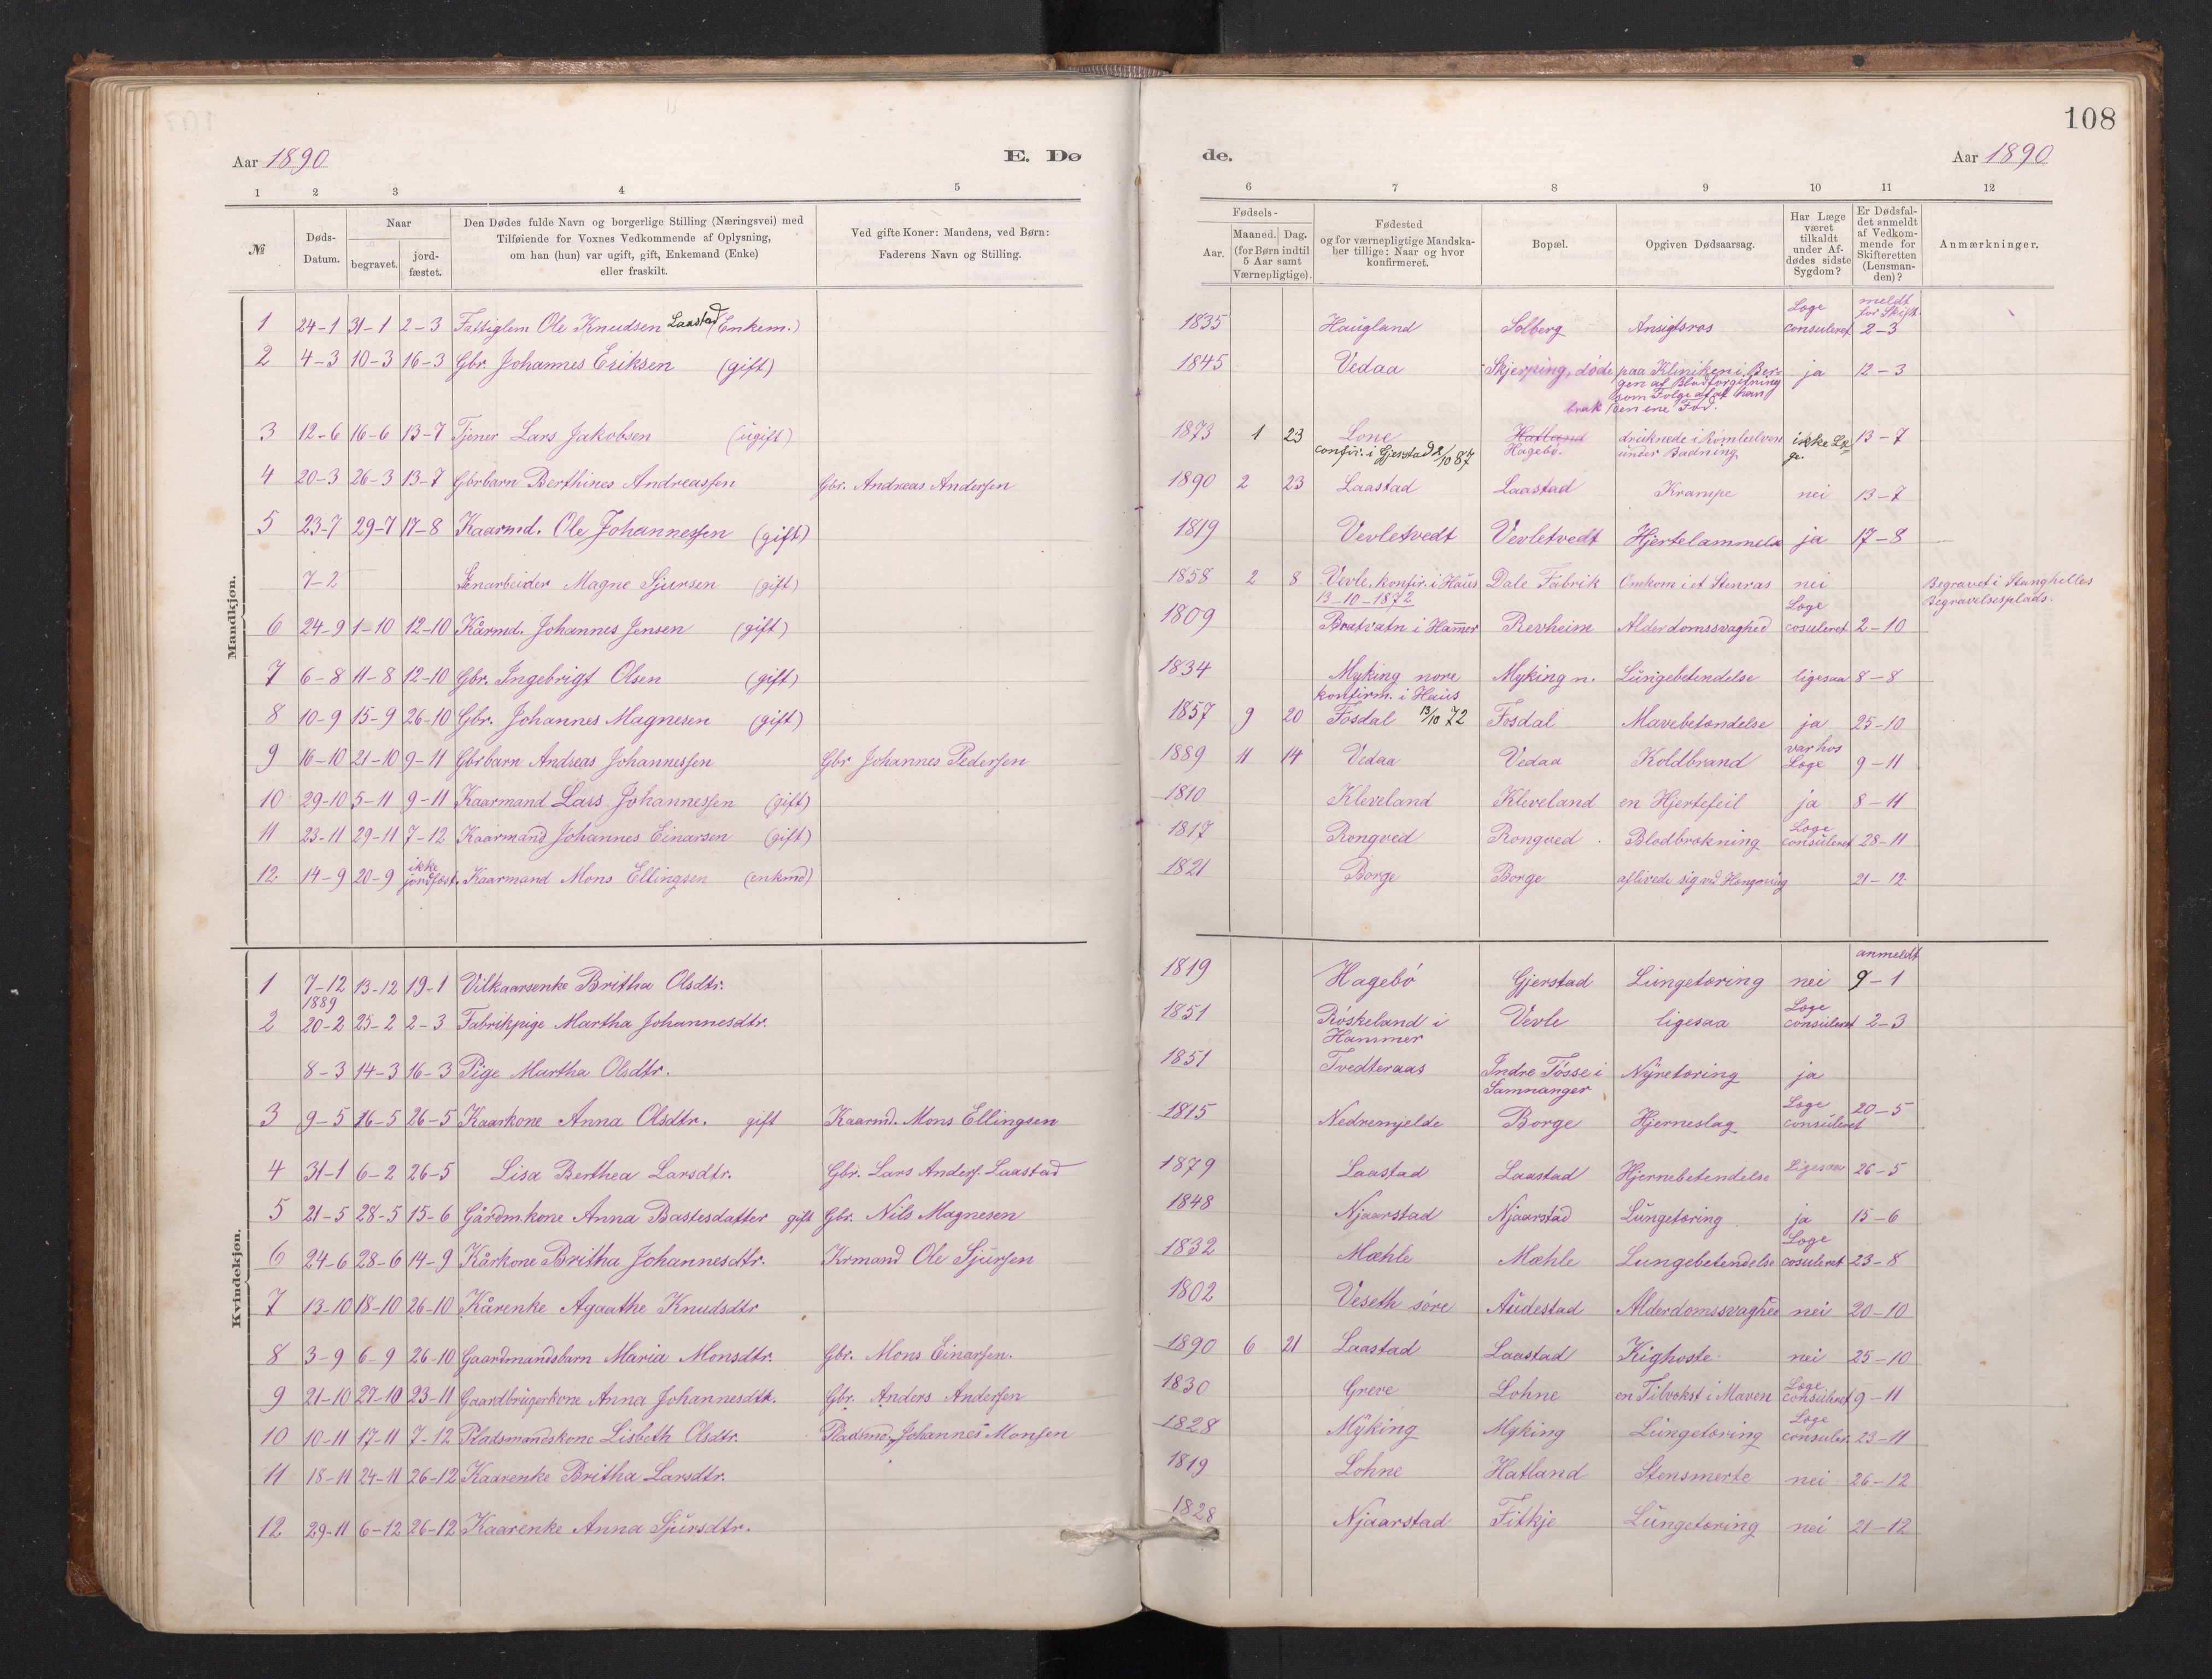 108
Aar 1890 E. Dø de. Aar 1890
1 2 3 4 5 6 7 8 9 10 11 12
№
Døds-Datum.
Naar
begravet. jordfæstet.
Den Dødes fulde Navn og borgerlige Stilling (Næringsvei) med
Tilføiende for Voxnes Vedkommende af Oplysning,
om han (hun) var ugift, gift, Enkemand (Enke)
eller fraskilt.
Ved gifte Koner: Mandens, ved Børn:
Faderens Navn og Stilling.
Fødsels-
Aar. Maaned. Dag.
(for Børn indtil
5 Aar samt
Værnepligtige).
Fødested
og for værnepligtige Mandska-
ber tillige: Naar og hvor
konfirmeret.
Bopæl.
Opgiven Dødsaarsag.
Har Læge
været
tilkaldt
under Af-
dødes sidste
Sygdom?
Er Dødsfal-
det anmeldt
af Vedkom-
mende for
Skifteretten
(Lensman-
den)?
Anmærkninger.
Mandkjøn.
1 24-1 31-1 2-3 Fattiglem Ole Knudsen Laastad (Enkem.) 1835 Haugland Solberg Ansigtsros Læge consuleret meldt for Skift. 2-3
2 4-3 10-3 16-3 Gbr. Johannes Eriksen (gift) 1845 Vedaa Skjerping, døde paa Kliniken i Ber- ja 12-3
gen af Blodforgiftning
som Følge af at han
brak den ene Fod.
3 12-6 16-6 13-7 Tjener Lars Jakobsen (ugift) 1873 1 23 Lone Hatland druknede i Romleelven ikke Læ- 13-7
confir. i Gjerstad 2/10 87 Hagebø. under Badning ge.
4 20-3 26-3 13-7 Gbrbarn Berthines Andreassen Gbr. Andreas Andersen 1890 2 23 Laastad Laastad Krampe nei 13-7
5 23-7 29-7 17-8 Kaarmd. Ole Johannessen (gift) 1819 Vevletvedt Vevletvedt Hjertelammelse ja 17-8
7-2 Stenarbeider Magne Sjursen (gift) 1858 2 8 Vevle. konfir. i Haus Dale Fabrik Omkom i et Stenras nei Begravet i Stanghelles
13-10-1872 Begravelsesplads.
6 24-9 1-10 12-10 Kårmd. Johannes Jensen (gift) 1809 Bratvatn i Hamer Revheim Alderdomssvaghed Læge cosuleret 2-10
7 6-8 11-8 12-10 Gbr. Ingebrigt Olsen (gift) 1834 Myking nore Myking n. Lungebetendelse ligesaa 8-8
konfirm. i Haus
8 10-9 15-9 26-10 Gbr. Johannes Magnesen (gift) 1857 9 20 Fosdal 13/10 72 Fosdal Mavebetændelse ja 25-10
9 16-10 21-10 9-11 Gbrbarn Andreas Johannessen Gbr Johannes Pedersen 1889 11 14 Vedaa Vedaa Koldbrand var hos Læge 9-11
10 29-10 5-11 9-11 Kaarmand Lars Johannessen (gift) 1810 Kleveland Kleveland en Hjertefeil ja 8-11
11 23-11 29-11 7-12 Kaarmand Johannes Einarsen (gift) 1817 Rongved Rongved Blodbrækning Læge consuleret 28-11
12. 14-9 20-9 ikke jordfæst. Kaarmand Mons Ellingsen (enkmd) 1821 Borge Borge aflivede sig ved Hængning 21-12
Kvindekjøn.
1 7-12 1889 13-12 19-1 Vilkaarsenke Britha Olsdtr. 1819 Hagebø Gjerstad Lungetæring nei anmeldt 9-1
2 20-2 25-2 2-3 Fabrikpige Martha Johannesdtr. 1851 Røskeland i Hammer Vevle ligesaa Læge consuleret 2-3
8-3 14-3 16-3 Pige Martha Olsdtr. 1851 Tvedteraas Indre Tøsse i Samnanger Nyretæring ja
3 9-5 16-5 26-5 Kaarkone Anna Olsdtr. gift Kaarmd. Mons Ellingsen 1815 Nedremjelde Borge Hjerneslag Læge consuleret 20-5
4 31-1 6-2 26-5 Lisa Berthea Larsdtr. Gbr. Lars Anders. Laastad 1879 Laastad Laastad Hjernebetendelse Ligesaa 26-5
5 21-5 28-5 15-6 Gårdmkone Anna Bastesdatter gift Gbr. Nils Magnesen 1848 Njaarstad Njaarstad Lungetæring ja 15-6
6 24-6 28-6 14-9 Kårkone Britha Johannesdtr. Krmand Ole Sjursen 1832 Mæhle Mæhle Lungebetendelse Læge cosuleret 23-8
7 13-10 18-10 26-10 Kårenke Agaathe Knudsdtr 1802 Veseth søre Audestad Alderdomssvaghed nei 20-10
8 3-9 6-9 26-10 Gaardmandsbarn Maria Monsdtr. Gbr. Mons Einarsen. 1890 6 21 Laastad Laastad Kighoste nei 25-10
9 21-10 27-10 23-11 Gaardbrugerkone Anna Johannesdtr. Gbr. Anders Andersen 1830 Greve Lohne en Tilvækst i Maven Læge consuleret 9-11
10 10-11 17-11 7-12 Pladsmandskone Lisbeth Olsdtr. Pladsmd Johannes Monsen 1828 Myking Myking Lungetæring Læge consuler. 23-11
11 18-11 24-11 26-12 Kaarenke Britha Larsdtr. 1819 Lohne Hatland Stensmerte nei 26-12
12. 29-11 6-12 26-12 Kaarenke Anna Sjursdtr. 1828 Njaarstad Fitkje Lungetæring nei 21-12